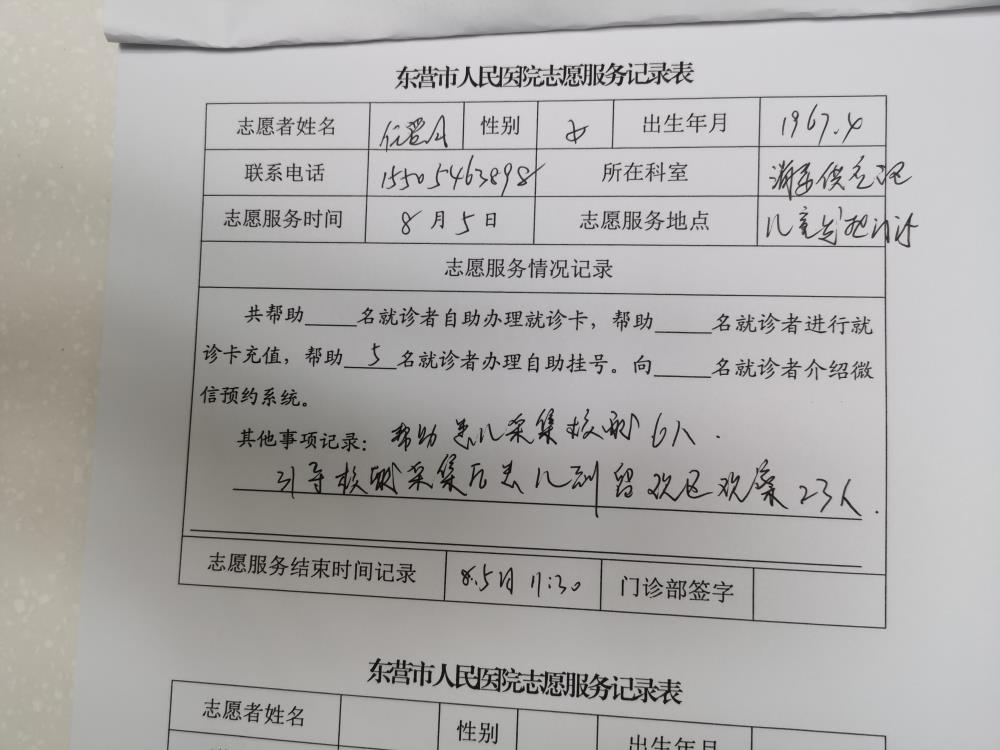 东营市人民医院志愿服务记录表
志愿者姓名 性别 女 出生年月 1967.4
联系电话 15505463898 所在科室 消毒供应
志愿服务时间 8月5日 志愿服务地点 儿童发热门诊
志愿服务情况记录
共帮助____名就诊者自助办理就诊卡,帮助____名就诊者进行就
诊卡充值,帮助 5 名就诊者办理自助挂号。向____名就诊者介绍微
信预约系统。
其他事项记录: 帮助患儿采集核酸6人.
引导核酸采集后患儿到留观区观察23人.
志愿服务结束时间记录 8.5日 11:30 门诊部签字
东营市人民医院志愿服务记录表
志愿者姓名 性别 出生年月